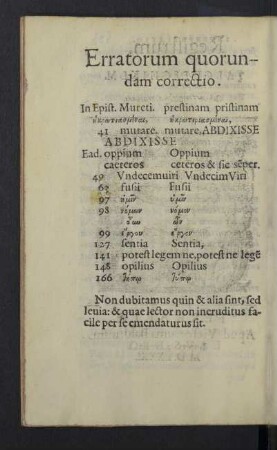 Erratorum quorun-
dam correctio.
In Epist. Mureti. prestinam pristinam
41 mutare. mutare, ABDIXISSE
ABDIXISSE
Ead. oppium Oppium
caeteros ceteros & sic seper.
49 Vndecemuiri Vndecim Viri
62 fusii Fusii
97 ὑμῶν ὑμῖν
98 νόμων νόμον
99 ἔργον ἔργον
127 sentia Sentia,
141 potest legem ne, potest ne legẽ
148 opilius Opilius
166
Non dubitamus quin & alia sint, sed
leuia: & quae lector non ineruditus fa-
cile per se emendaturus sit.